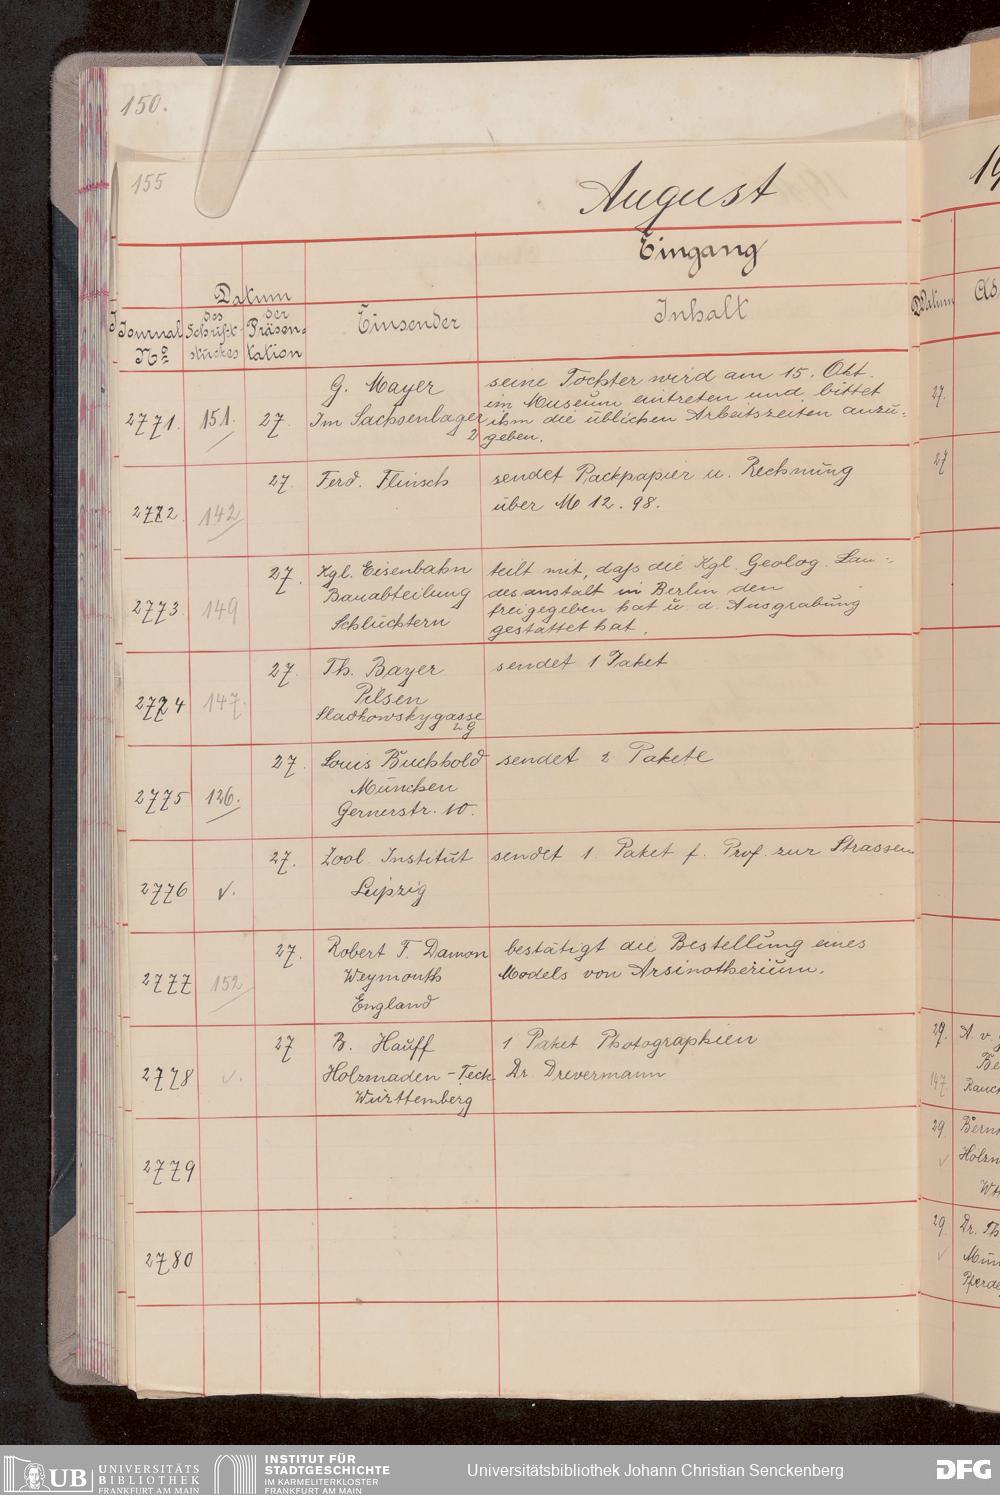 150.
155
August
Eingang
Datum
Journal
No
des
Schrift-
stückes
der
Präsen-
tation
Einsender
Inhalt
2771. 151. 27. G. Mayer
Im Sachsenlager
2
seine Tochter wird am 15. Okt.
im Museum eintreten und bittet
ihm die üblichen Arbeitszeiten anzu-
geben.
2772. 142 27. Ferd. Flinsch
sendet Packpapier u. Rechnung
über M 12.98.
2773. 149 27. Kgl. Eisenbahn
Bauabteilung
Schlüchtern
teilt mit, daß die Kgl. Geolog. Lan-
desanstalt in Berlin den
freigegeben hat u. d. Ausgrabung
gestattet hat.
2774 147. 27. Th. Bayer
Pilsen
Sladkowskygasse
sendet 1 Paket
2775 126. 27. Louis Buchhold
München
Gernerstr. 10.
sendet 2 Pakete
2776 v. 27. Zool. Institut
Leipzig
sendet 1 Paket f. Prof. zur Strassen
2777 152 27. Robert F. Damon
Weymouth
England
bestätigt die Bestellung eines
Models von Arsinotherium.
2778 v. 27 B. Hauff
Holzmaden-Teck
Württemberg
1 Paket Photographien
Dr. Drevermann
2779
2780
19
Datum
27.
27
29. A. v.
147. Rauch
29. Bern
v Holzm
29. Dr. Th
v Mün
Pferde
UB UNIVERSITÄTS
BIBLIOTHEK
FRANKFURT AM MAIN
INSTITUT FÜR
STADTGESCHICHTE
IM KARMELITERKLOSTER
FRANKFURT AM MAIN
Universitätsbibliothek Johann Christian Senckenberg
DFG